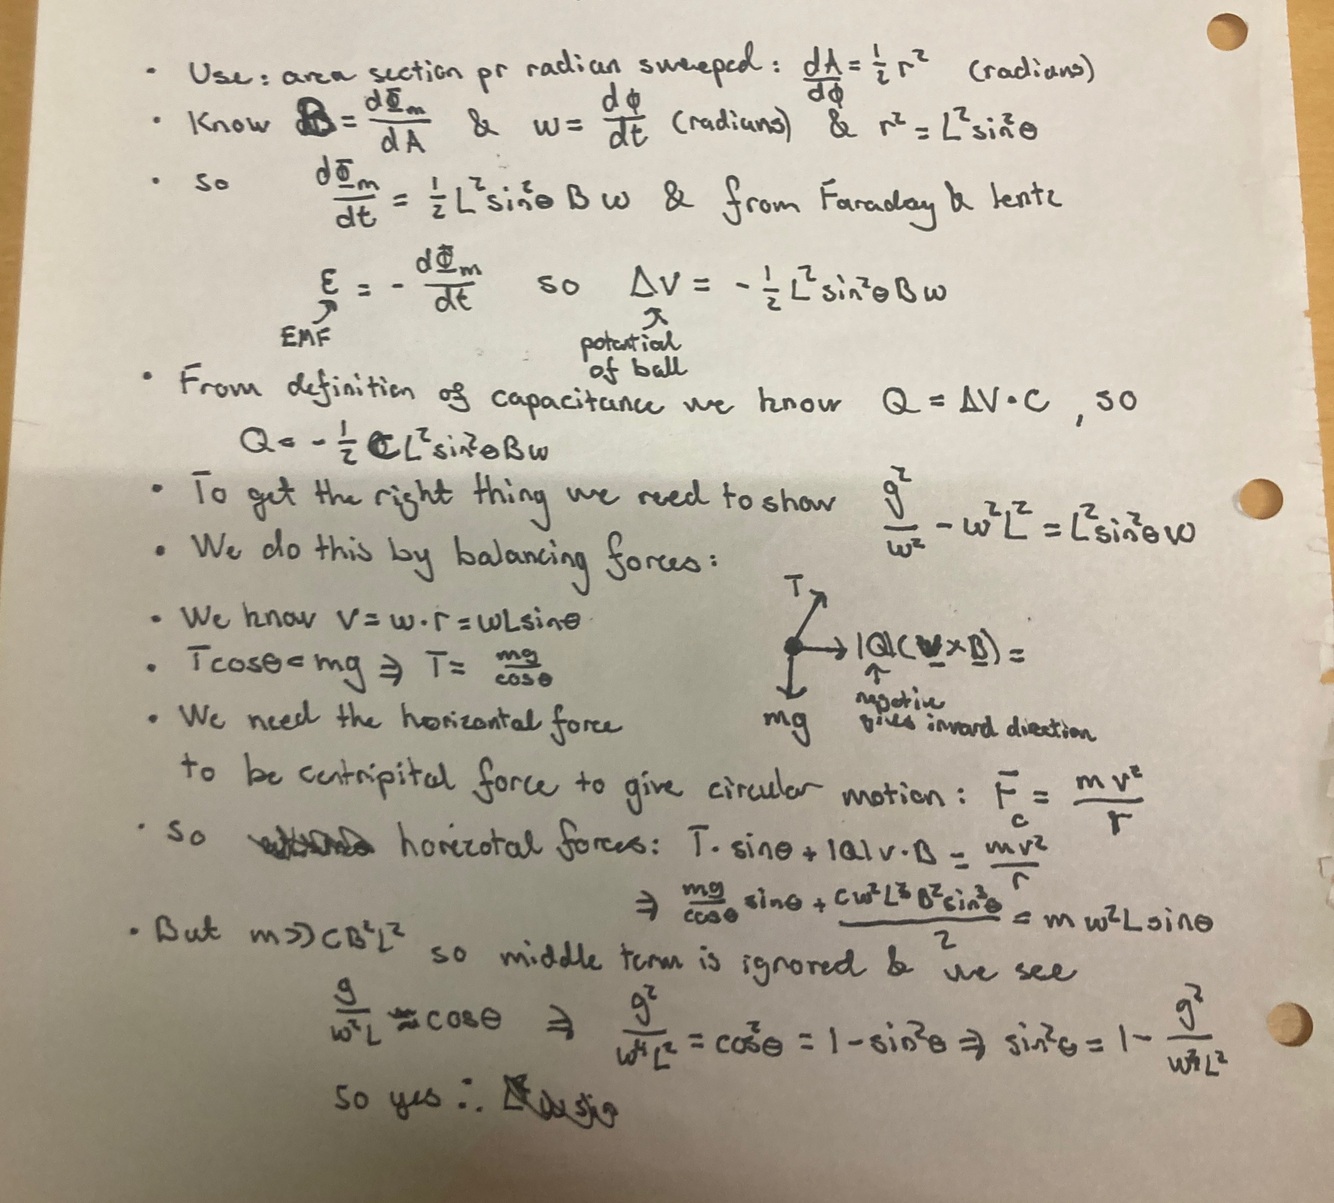 • Use: area section pr radian sweeped: dA/dϕ = 1/2 r² (radians)
• Know B = dΦm/dA & w = dϕ/dt (radians) & r² = L²sin²θ
• so dΦm/dt = 1/2 L²sin²θ B w & from Faraday & lentz
ε = - dΦm/dt so ΔV = - 1/2 L²sin²θ B w
EMF
potential
of ball
• From definition of capacitance we know Q = ΔV • C , so
Q = - 1/2 C L²sin²θ B w
• To get the right thing we need to show g²/w² - w²L² = L²sin²θ w
• We do this by balancing forces:
T
• We know v = w • r = wLsinθ
|Q|(v × B) =
• Tcosθ = mg ⇒ T = mg/cosθ
negative
gives inward direction
mg
• We need the horizontal force
to be centripital force to give circular motion: F_c = mv²/r
• so horizotal forces: T • sinθ + |Q| v • B = mv²/r
⇒ mg/cosθ sinθ + Cw²L³B²sin³θ/2 = m w²L sinθ
• But m >> CB²L² so middle term is ignored & we see
g/w²L ≈ cosθ ⇒ g²/w⁴L² = cos²θ = 1 - sin²θ ⇒ sin²θ = 1 - g²/w⁴L²
so yes ∴